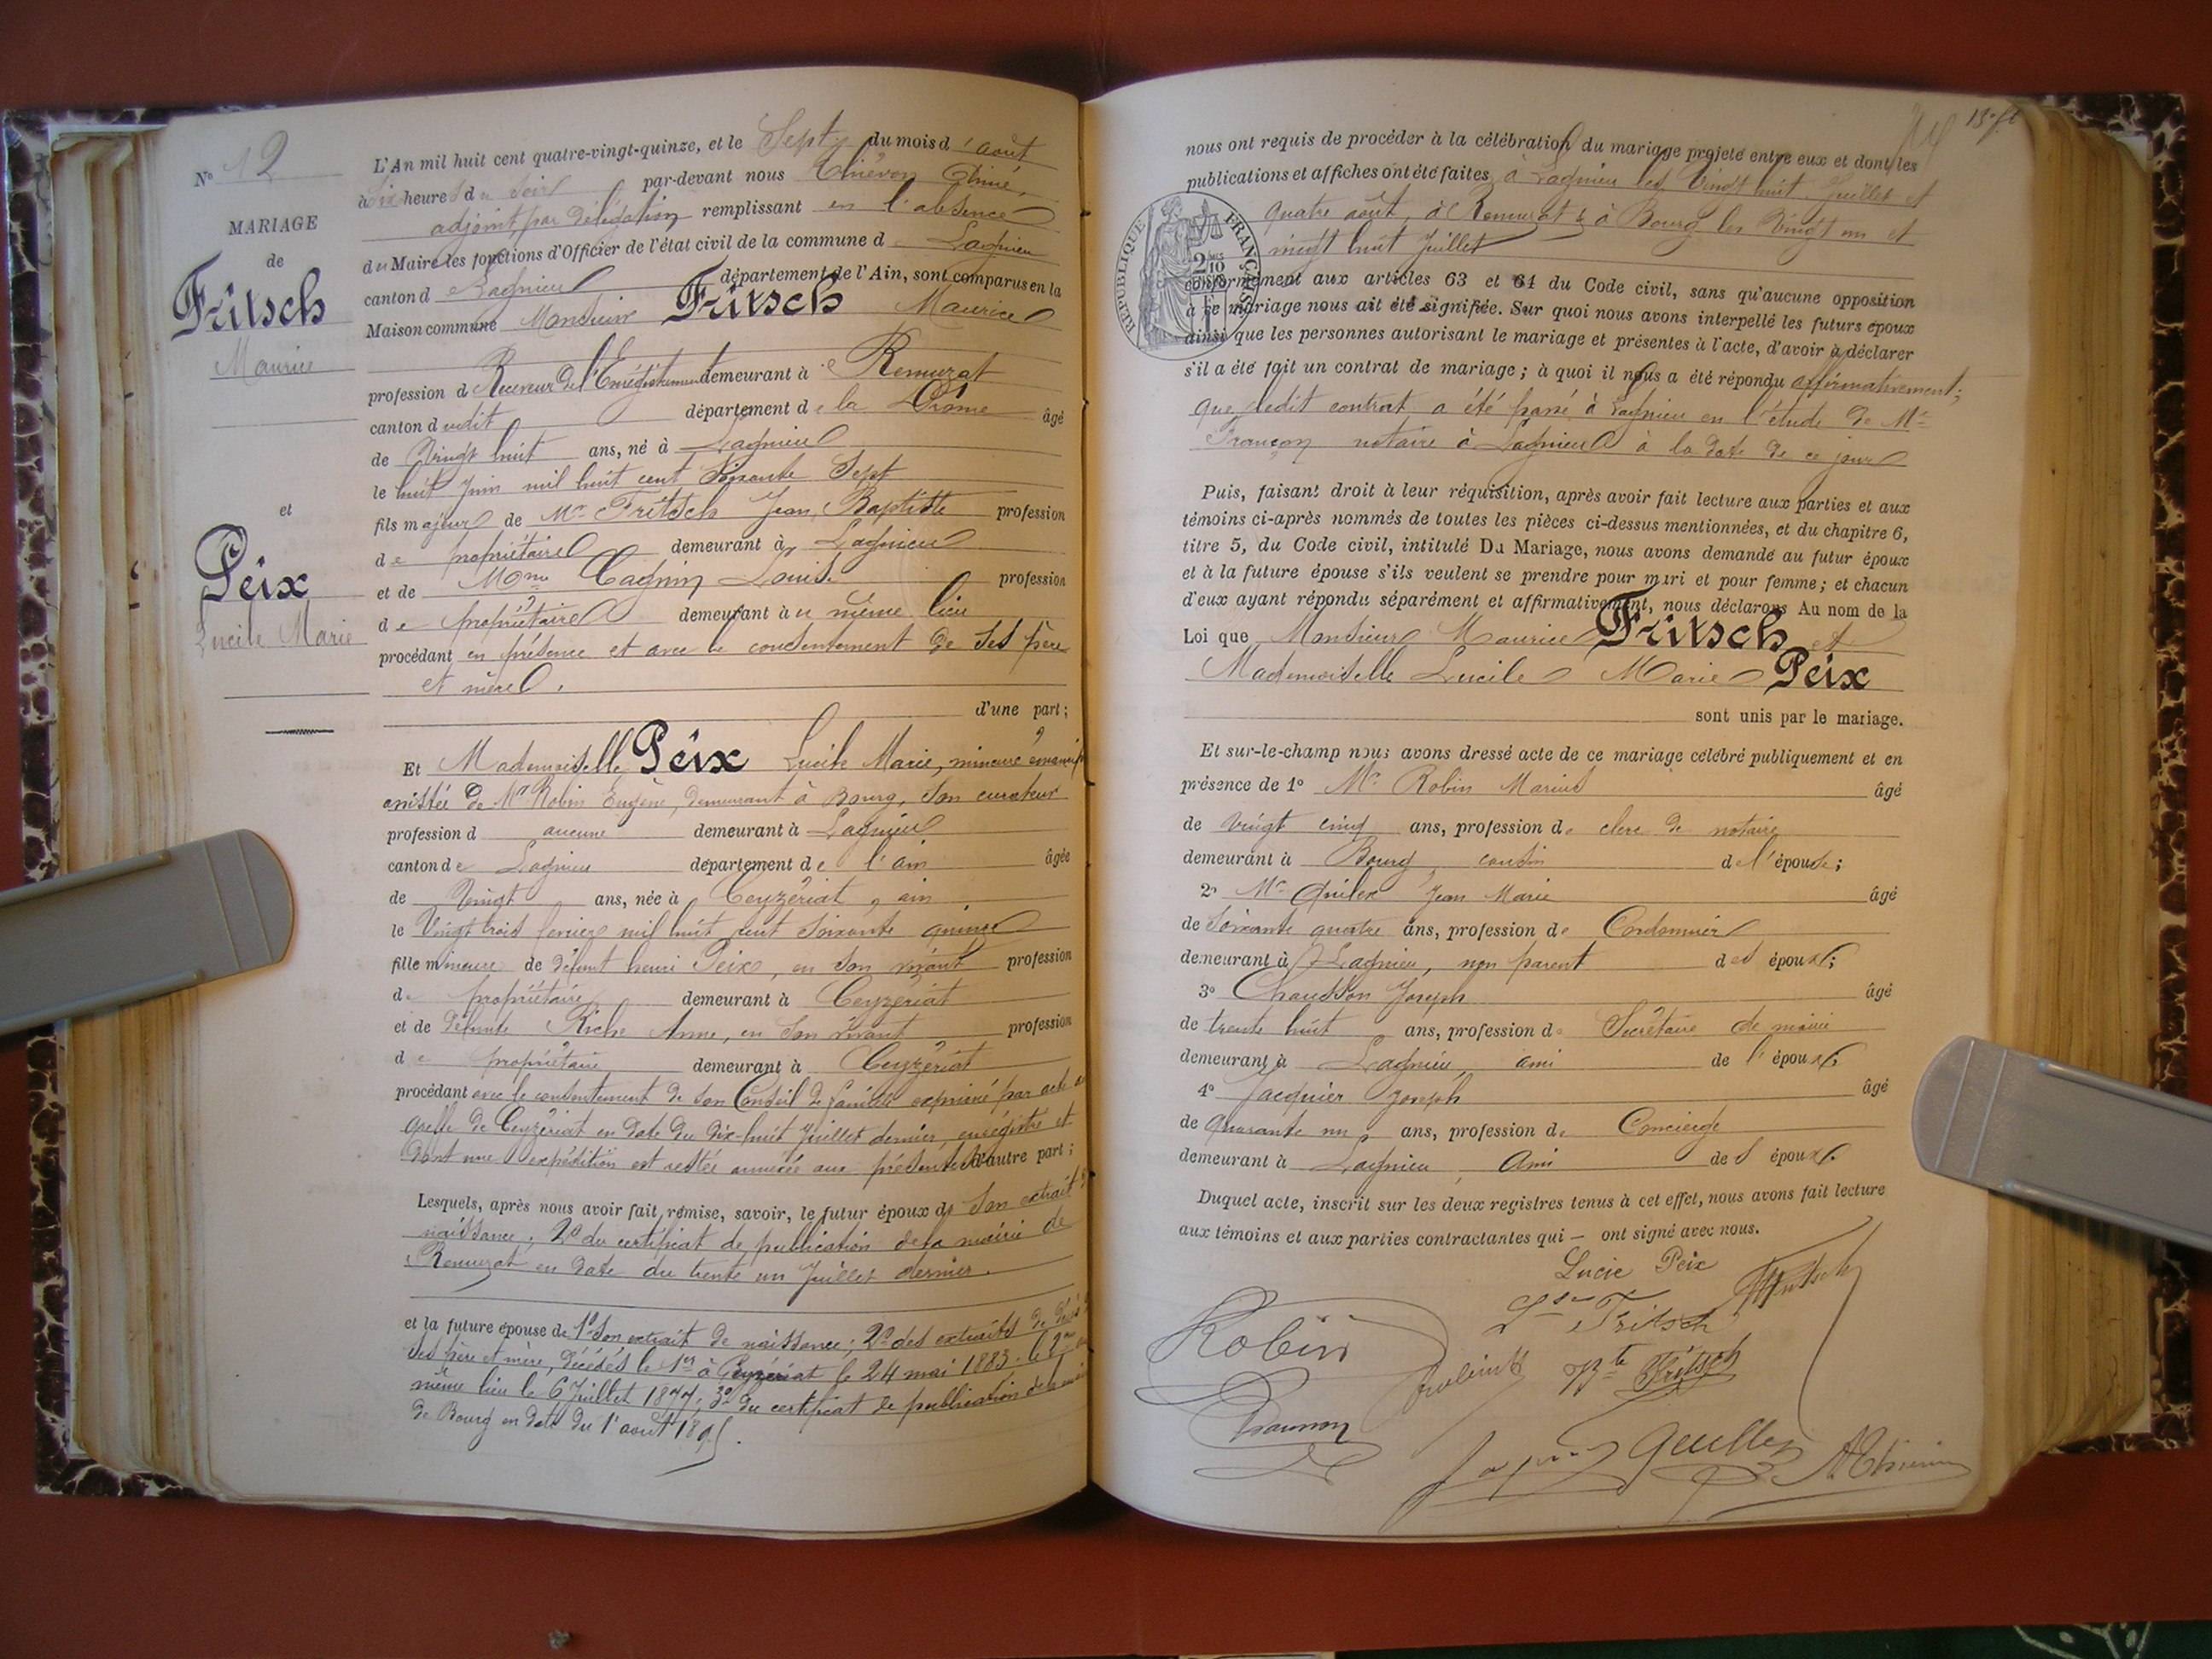 N° 12
MARIAGE
de
Fritsch
Maurice
et
Peix
Lucile Marie
L'An mil huit cent quatre-vingt-quinze, et le Sept du mois d'août
à Six heures du Soir par-devant nous Thiévon
adjoint par délégation remplissant en l'absence
du Maire les fonctions d'Officier de l'état civil de la commune de Lagnieu
canton de Lagnieu département de l'Ain, sont comparus en la
Maison commune Monsieur Fritsch Maurice
profession de Receveur de l'Enregistrement demeurant à Remuzat
canton dudit département de la Drôme âgé
de Vingt huit ans, né à Lagnieu
le huit Juin mil huit cent Soixante Sept
fils majeur de Mr Fritsch Jean Baptiste profession
de propriétaire demeurant à Lagnieu
et de Mme Cagnin Louise profession
de propriétaire demeurant au même lieu
procédant en présence et avec le consentement de ses père
et mère.
d'une part;
Et Mademoiselle Peix Lucile Marie, mineure émancipée
assistée de Mr Robin Eugène, demeurant à Bourg, son curateur
profession d aucune demeurant à Lagnieu
canton de Lagnieu département de l'ain âgée
de Vingt ans, née à Ceyzériat, ain
le Vingt trois février mil huit cent Soixante quinze
fille mineure de défunt henri Peix, en son vivant profession
de propriétaire demeurant à Ceyzériat
et de défunte Riche Anne, en son vivant profession
de propriétaire demeurant à Ceyzériat
procédant avec le consentement de son Conseil de famille exprimé par acte au
greffe de Ceyzériat en date du dix-huit Juillet dernier, enregistré et
dont une expédition est restée annexée aux présentes d'autre part;
Lesquels, après nous avoir fait remise, savoir, le futur époux de son extrait de
naissance; 2° du certificat de publication de la mairie de
Remuzat en date du trente un Juillet dernier.
et la future épouse de 1° Son extrait de naissance; 2° des extraits de décès de
ses père et mère, décédés le 1er à Ceyzériat le 24 mai 1883. le 2me au
même lieu le 6 Juillet 1877; 3° du certificat de publication de la mairie
de Bourg en date du 1er août 1895.
15e ft
nous ont requis de procéder à la célébration du mariage projeté entre eux et dont les
publications et affiches ont été faites à Lagnieu les Vingt huit Juillet et
quatre août, à Remuzat & à Bourg les Vingt un et
vingt huit Juillet
RÉPUBLIQUE FRANÇAISE
2/10 EN SUS
conformément aux articles 63 et 64 du Code civil, sans qu'aucune opposition
à ce mariage nous ait été signifiée. Sur quoi nous avons interpellé les futurs époux
ainsi que les personnes autorisant le mariage et présentes à l'acte, d'avoir à déclarer
s'il a été fait un contrat de mariage; à quoi il nous a été répondu affirmativement;
que ledit contrat a été passé à Lagnieu en l'étude de Me
Françon notaire à Lagnieu à la date de ce jour
Puis, faisant droit à leur réquisition, après avoir fait lecture aux parties et aux
témoins ci-après nommés de toutes les pièces ci-dessus mentionnées, et du chapitre 6,
titre 5, du Code civil, intitulé Du Mariage, nous avons demandé au futur époux
et à la future épouse s'ils veulent se prendre pour mari et pour femme; et chacun
d'eux ayant répondu séparément et affirmativement, nous déclarons Au nom de la
Loi que Monsieur Maurice Fritsch et
Mademoiselle Lucile Marie Peix
sont unis par le mariage.
Et sur-le-champ nous avons dressé acte de ce mariage célébré publiquement et en
présence de 1° Mr Robin Marius âgé
de vingt cinq ans, profession de clerc de notaire
demeurant à Bourg, cousin de l'épouse;
2° Mr Quiler Jean Marie âgé
de Soixante quatre ans, profession de Cordonnier
demeurant à Lagnieu, non parent des époux;
3° Chausson Joseph âgé
de trente huit ans, profession de Secrétaire de mairie
demeurant à Lagnieu, ami de l'époux;
4° Jacquier Joseph âgé
de Quarante un ans, profession de Concierge
demeurant à Lagnieu, Ami des époux.
Duquel acte, inscrit sur les deux registres tenus à cet effet, nous avons fait lecture
aux témoins et aux parties contractantes qui – ont signé avec nous.
Lucie Peix
Fritsch
Lse Fritsch
Robin
Bte Fritsch